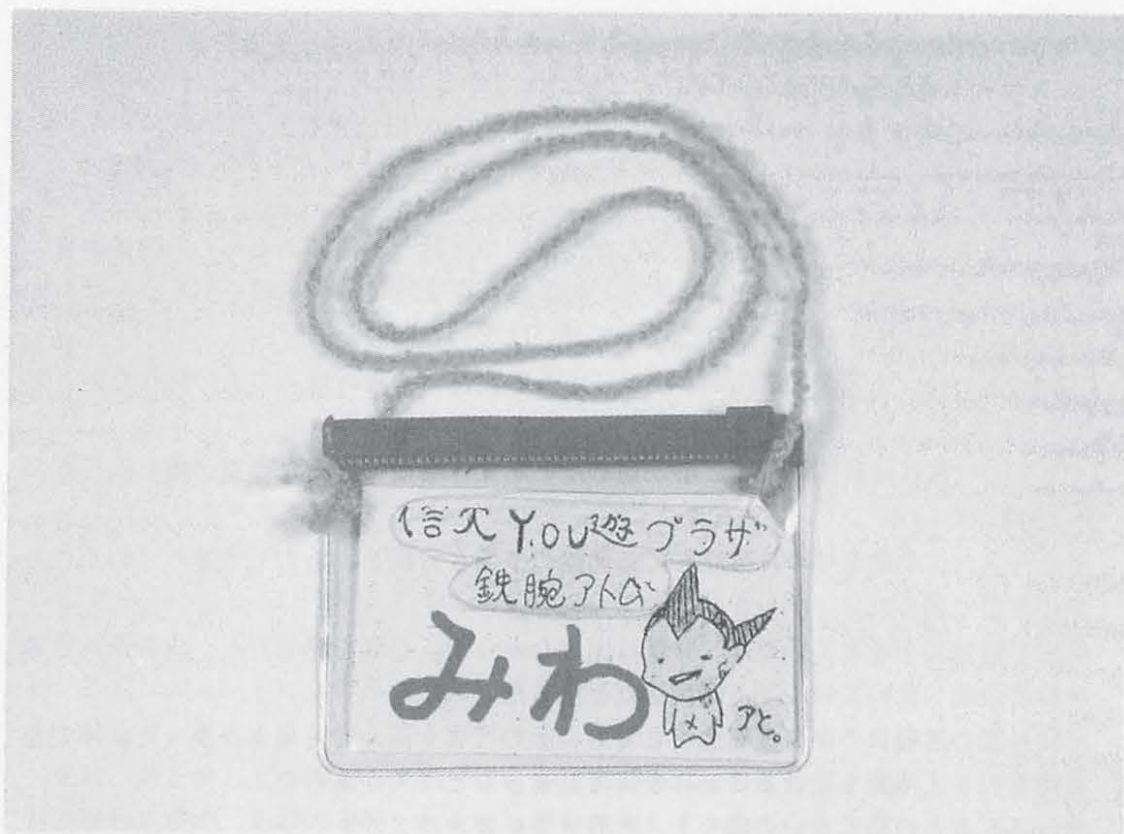 信大YOU遊プラザ
鉄腕アトム
みわ
アと。